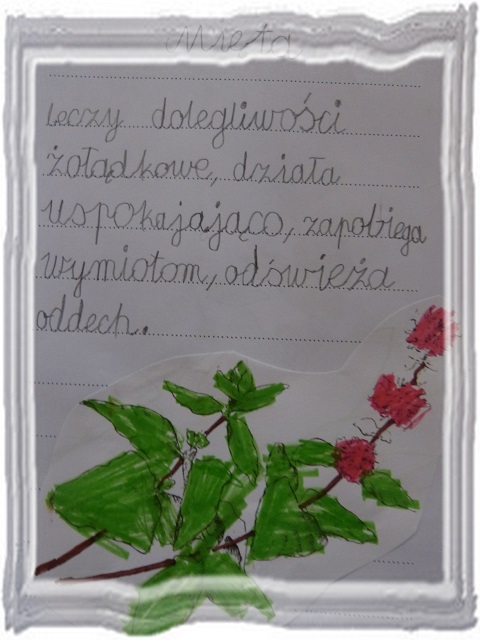 Mięta
Leczy dolegliwości
żołądkowe, działa
uspokajająco, zapobiega
wymiotom, odświeża
oddech.